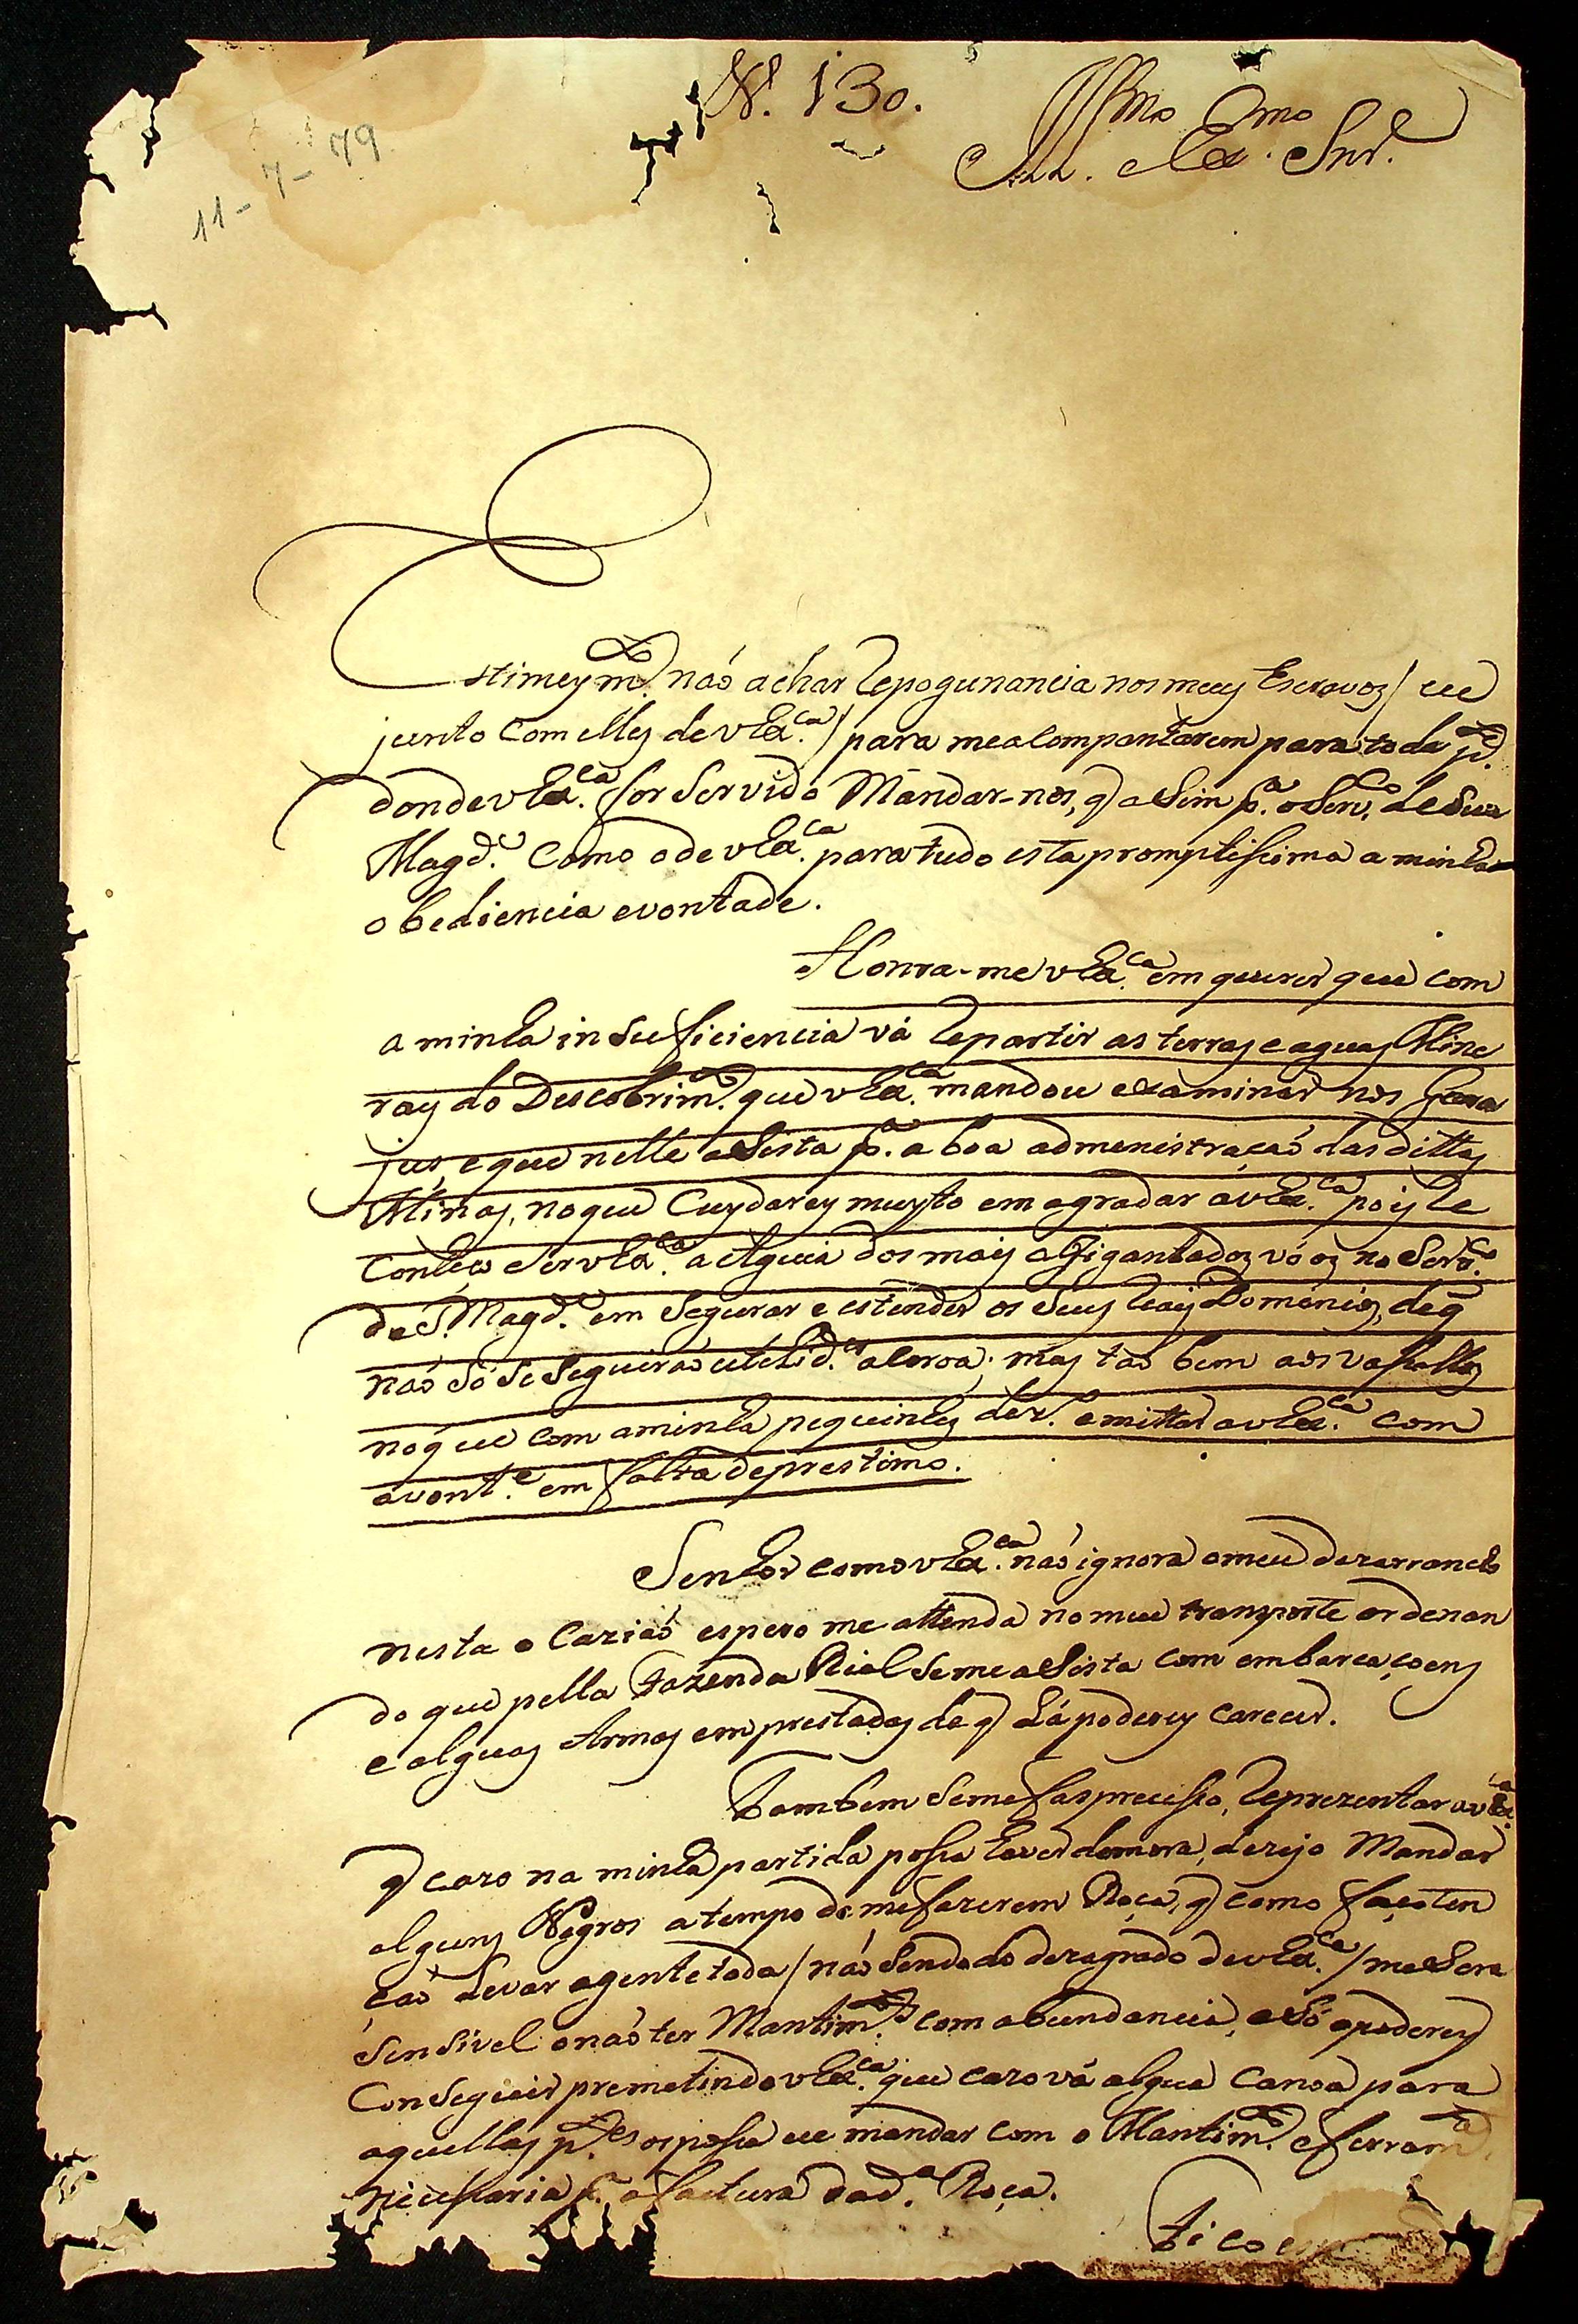 N. 130.
Illmo Exmo Snr.
11-7-79
Estimey mto não achar repogunancia nos meus Escravos / eu
junto com elles de vExca. / para me acompanharem para toda pte
donde vExca. for Servido Mandar-nos, q asim pa. o Serv.o de Sua
Magde. como o de vExca. para tudo esta promptissima a minha
obediencia e vontade.
Honra-me vExca. em querer que com
a minha insuficiencia vá repartir as terras e aguas Mine
rays do Descobrimto. que vExca. mandou examinar nos Guara
e que nelle asista pa. a boa admenistração das dittas
Minas, no que Cuydarey muyto em agradar a vExca. pois re
conheco Ser vExca. a Aguia dos mais agigantados vóos no Servco.
de S. Magde. em Segurar e estender os Seus reais Domenios, de q
não Só Se Seguirão utelides. a Coroa; mas tão bem aos vasallos
no que com a minha pequinhes dez.o emittar a vExca. com
a vonte. em falta de prestimo.
Senhor como vExca. não ignora o meu dezarrancho
nesta ocazião espero me attenda no meu transporte ordenan
do que pella Fazenda Rial Se me asista com embarcaçoens
e alguas Armas emprestadas de q Lá poderey carecer.
Tambem Se me fas precisso, reprezentar a vExca.
q cazo na minha partida possa haver demora, dezejo Mandar
alguns Negros a tempo de me fazerem Roça, q como faço ten
cão Levar a gente toda / não Sendo do dezagrado de vExca. / me Sera
Sensivel o não ter Mantimtos. com abundancia, e Só o poderey
Conseguir premetindo vExca. que cazo vá algua Canoa para
aquellas ptes os possa eu mandar com o Mantimto. e ferramta
necessaria pa. a factura da da. Roça.
Fico